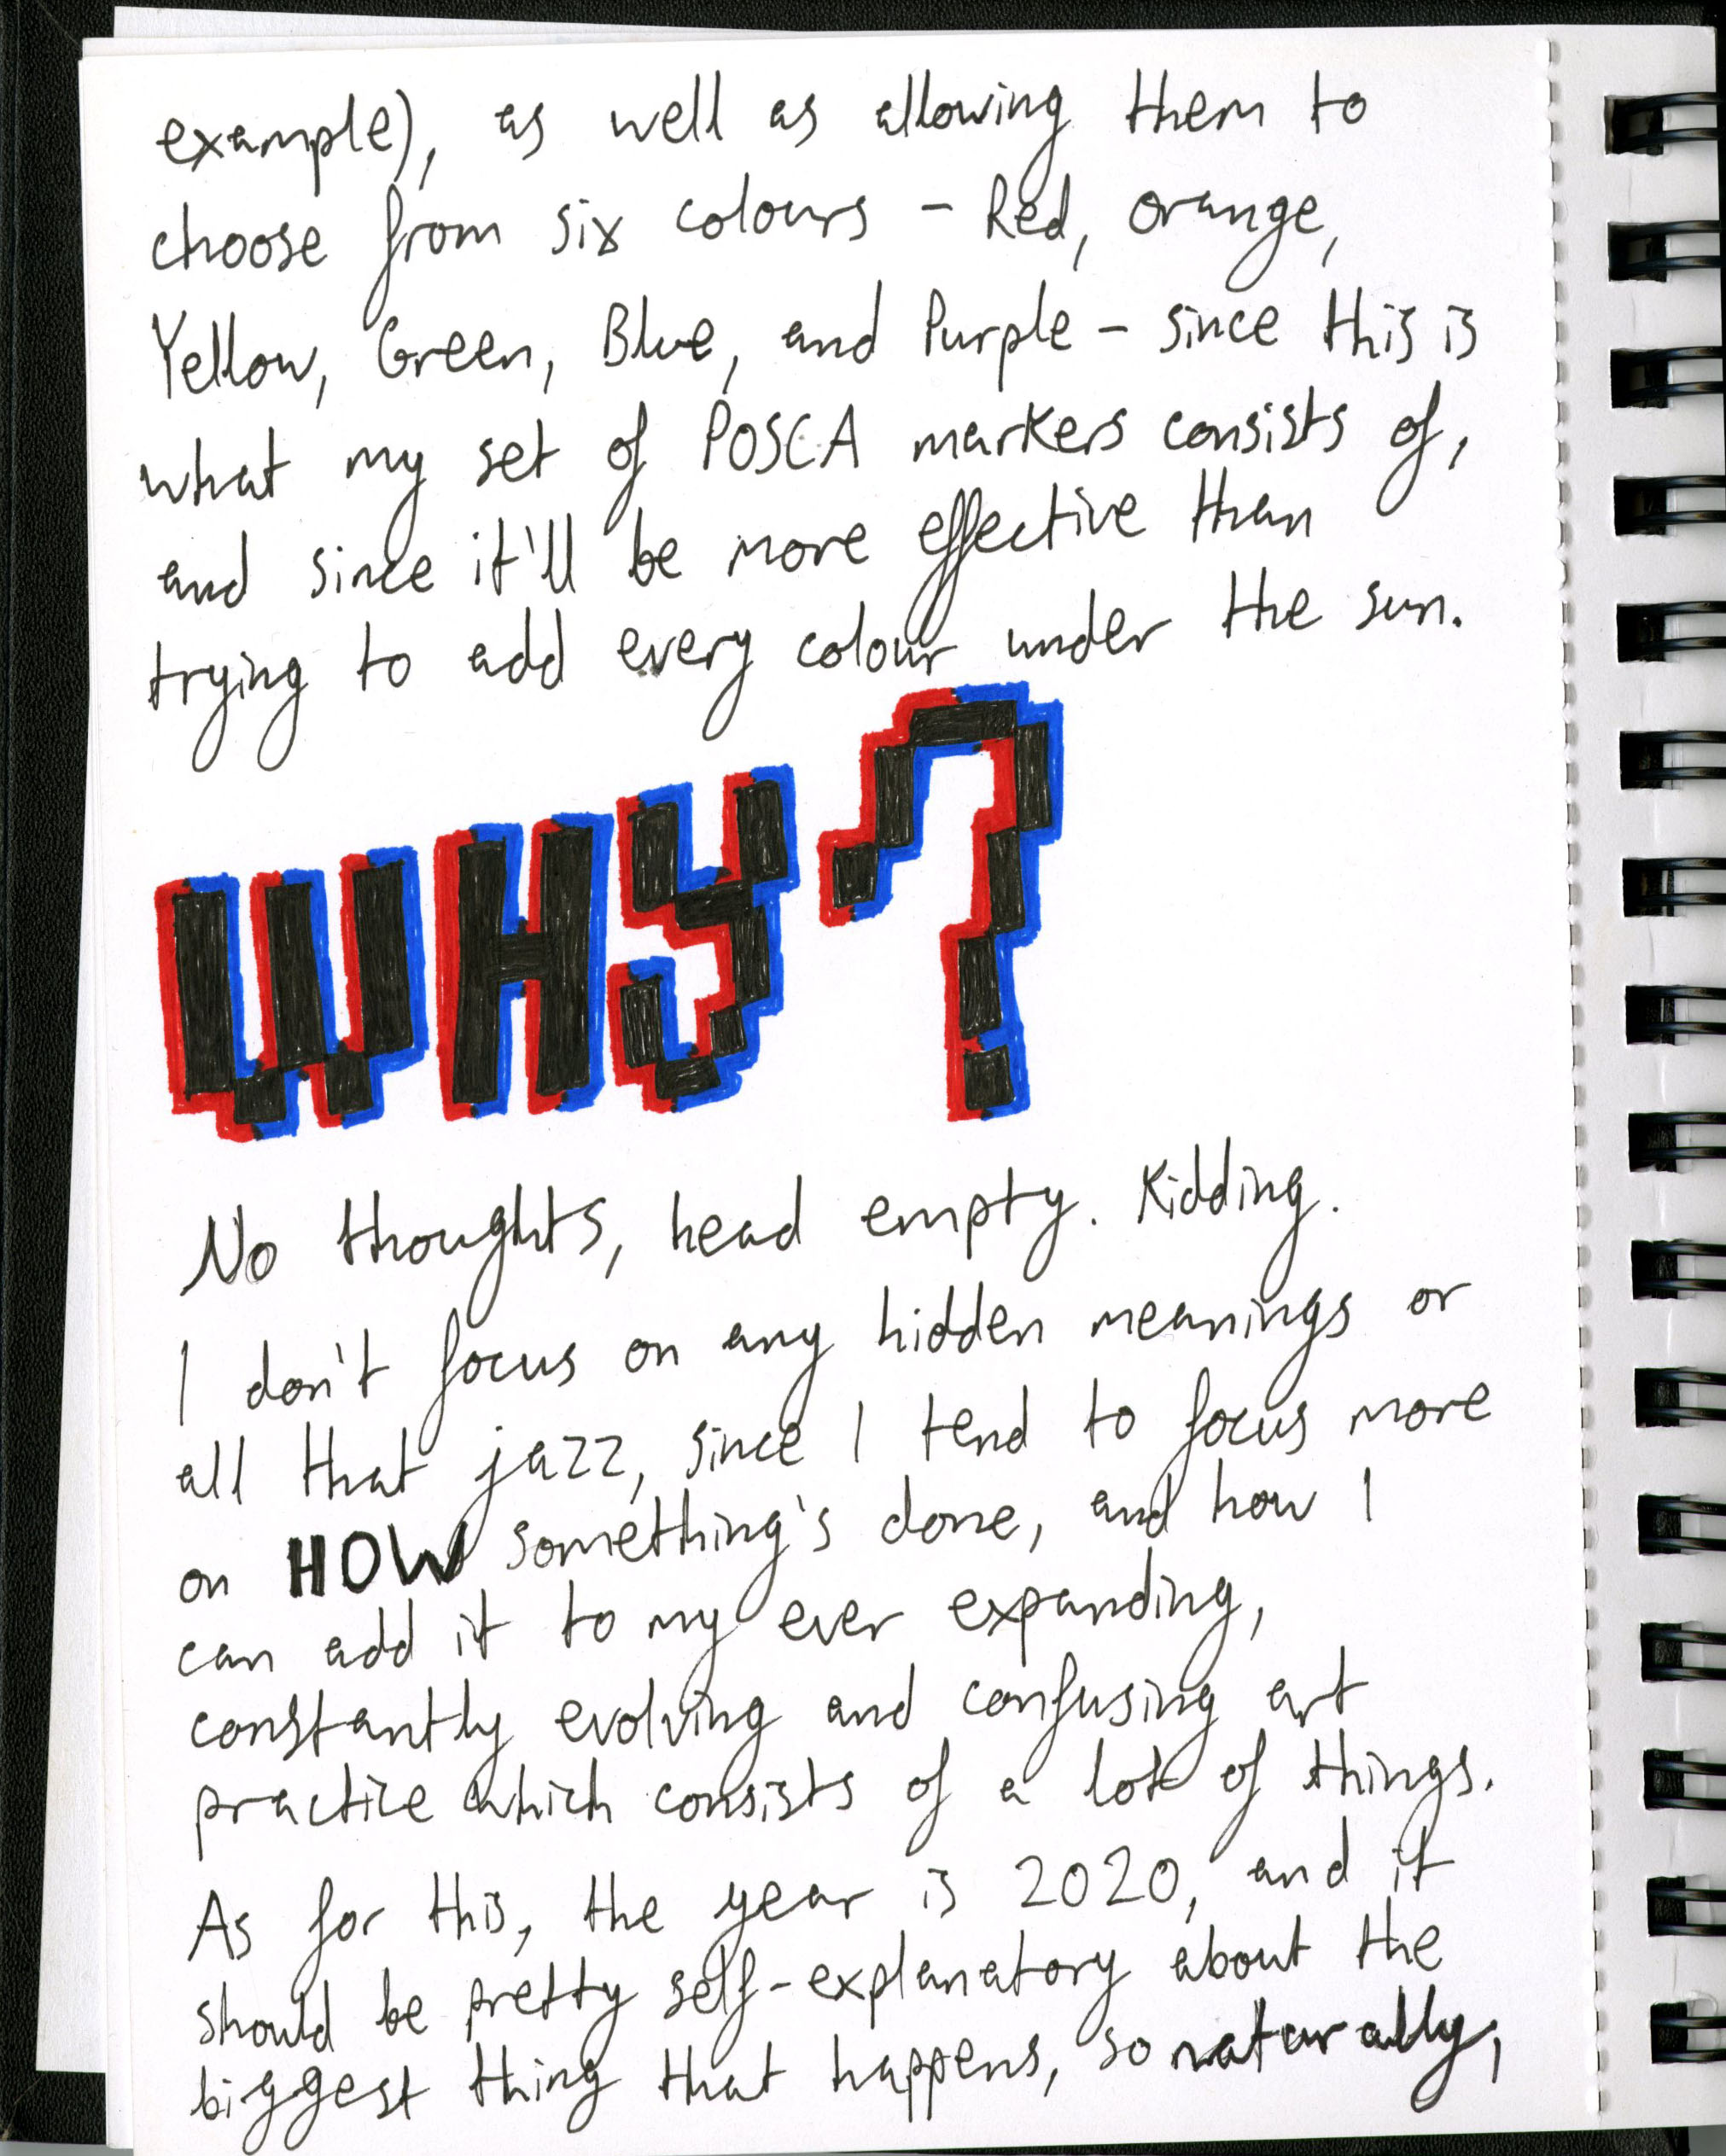 example), as well as allowing them to
choose from six colours - Red, orange,
Yellow, Green, Blue, and Purple - since this is
what my set of POSCA markers consists of,
and since it'll be more effective than
trying to add every colour under the sun.
WHY?
No thoughts, head empty. Kidding.
I don't focus on any hidden meanings or
all that jazz, since I tend to focus more
on HOW something's done, and how I
can add it to my ever expanding,
constantly evolving and confusing art
practice which consists of a lot of things.
As for this, the year is 2020, and it
should be pretty self-explanatory about the
biggest thing that happens, so naturally,